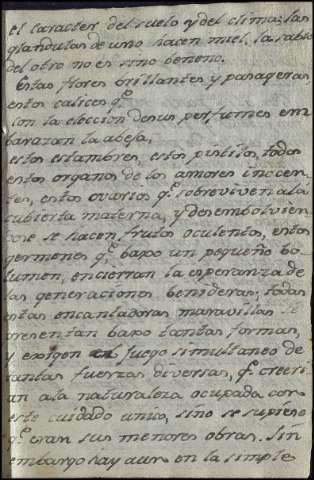 el caracter del suelo y del clima: las
glandulas de uno hacen miel, la sabia
del otro no es sino beneno.
Estas flores brillantes y pasageras,
estos calices q.e
con la eleccion de sus perfumes em
barazan la abeja,
estos estambres, estos pistilos, todos
estos organos de los amores inocen
tes, estos ovarios q.e sobreviven a la
cubierta materna, y desembolvien
dose se hacen frutos oculentos, estos
germenes q.e baxo un pequeño bo
lumen, encierran la esperanza de
las generaciones benideras; todas
estas encantadoras maravillas se
presentan baxo tantas formas,
y exigen el juego simultaneo de
tantas fuerzas diversas, q.e creeri
an a la naturaleza ocupada con
este cuidado unico, sino se supiese
q.e eran sus menores obras. Sin
embargo hay aun en la simple